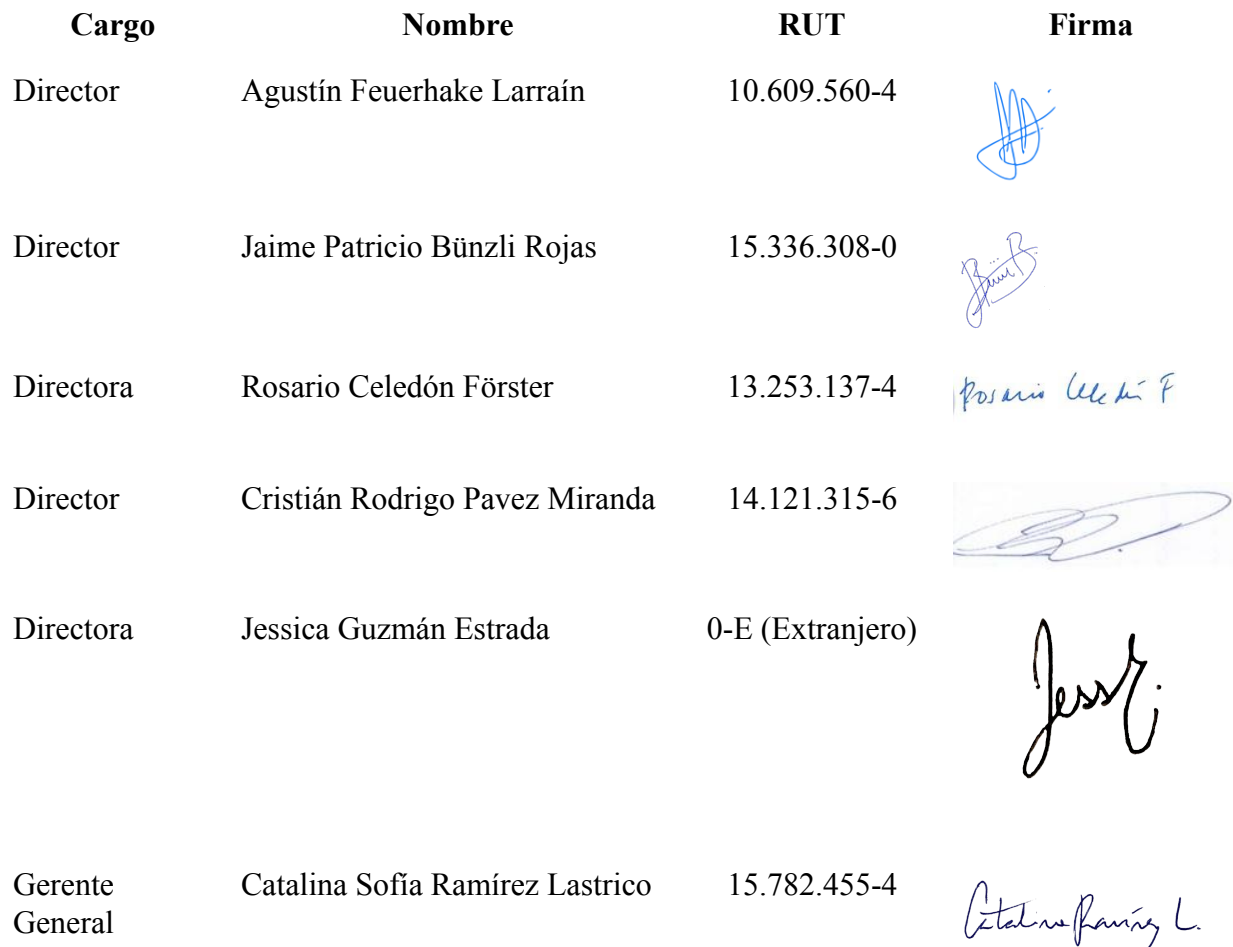 Cargo Nombre RUT Firma
Director Agustín Feuerhake Larraín 10.609.560-4
Director Jaime Patricio Bünzli Rojas 15.336.308-0
Directora Rosario Celedón Förster 13.253.137-4 Rosario Celedón F
Director Cristián Rodrigo Pavez Miranda 14.121.315-6
Directora Jessica Guzmán Estrada 0-E (Extranjero) Jess E.
Gerente Catalina Sofía Ramírez Lastrico 15.782.455-4 Catalina Ramírez L.
General